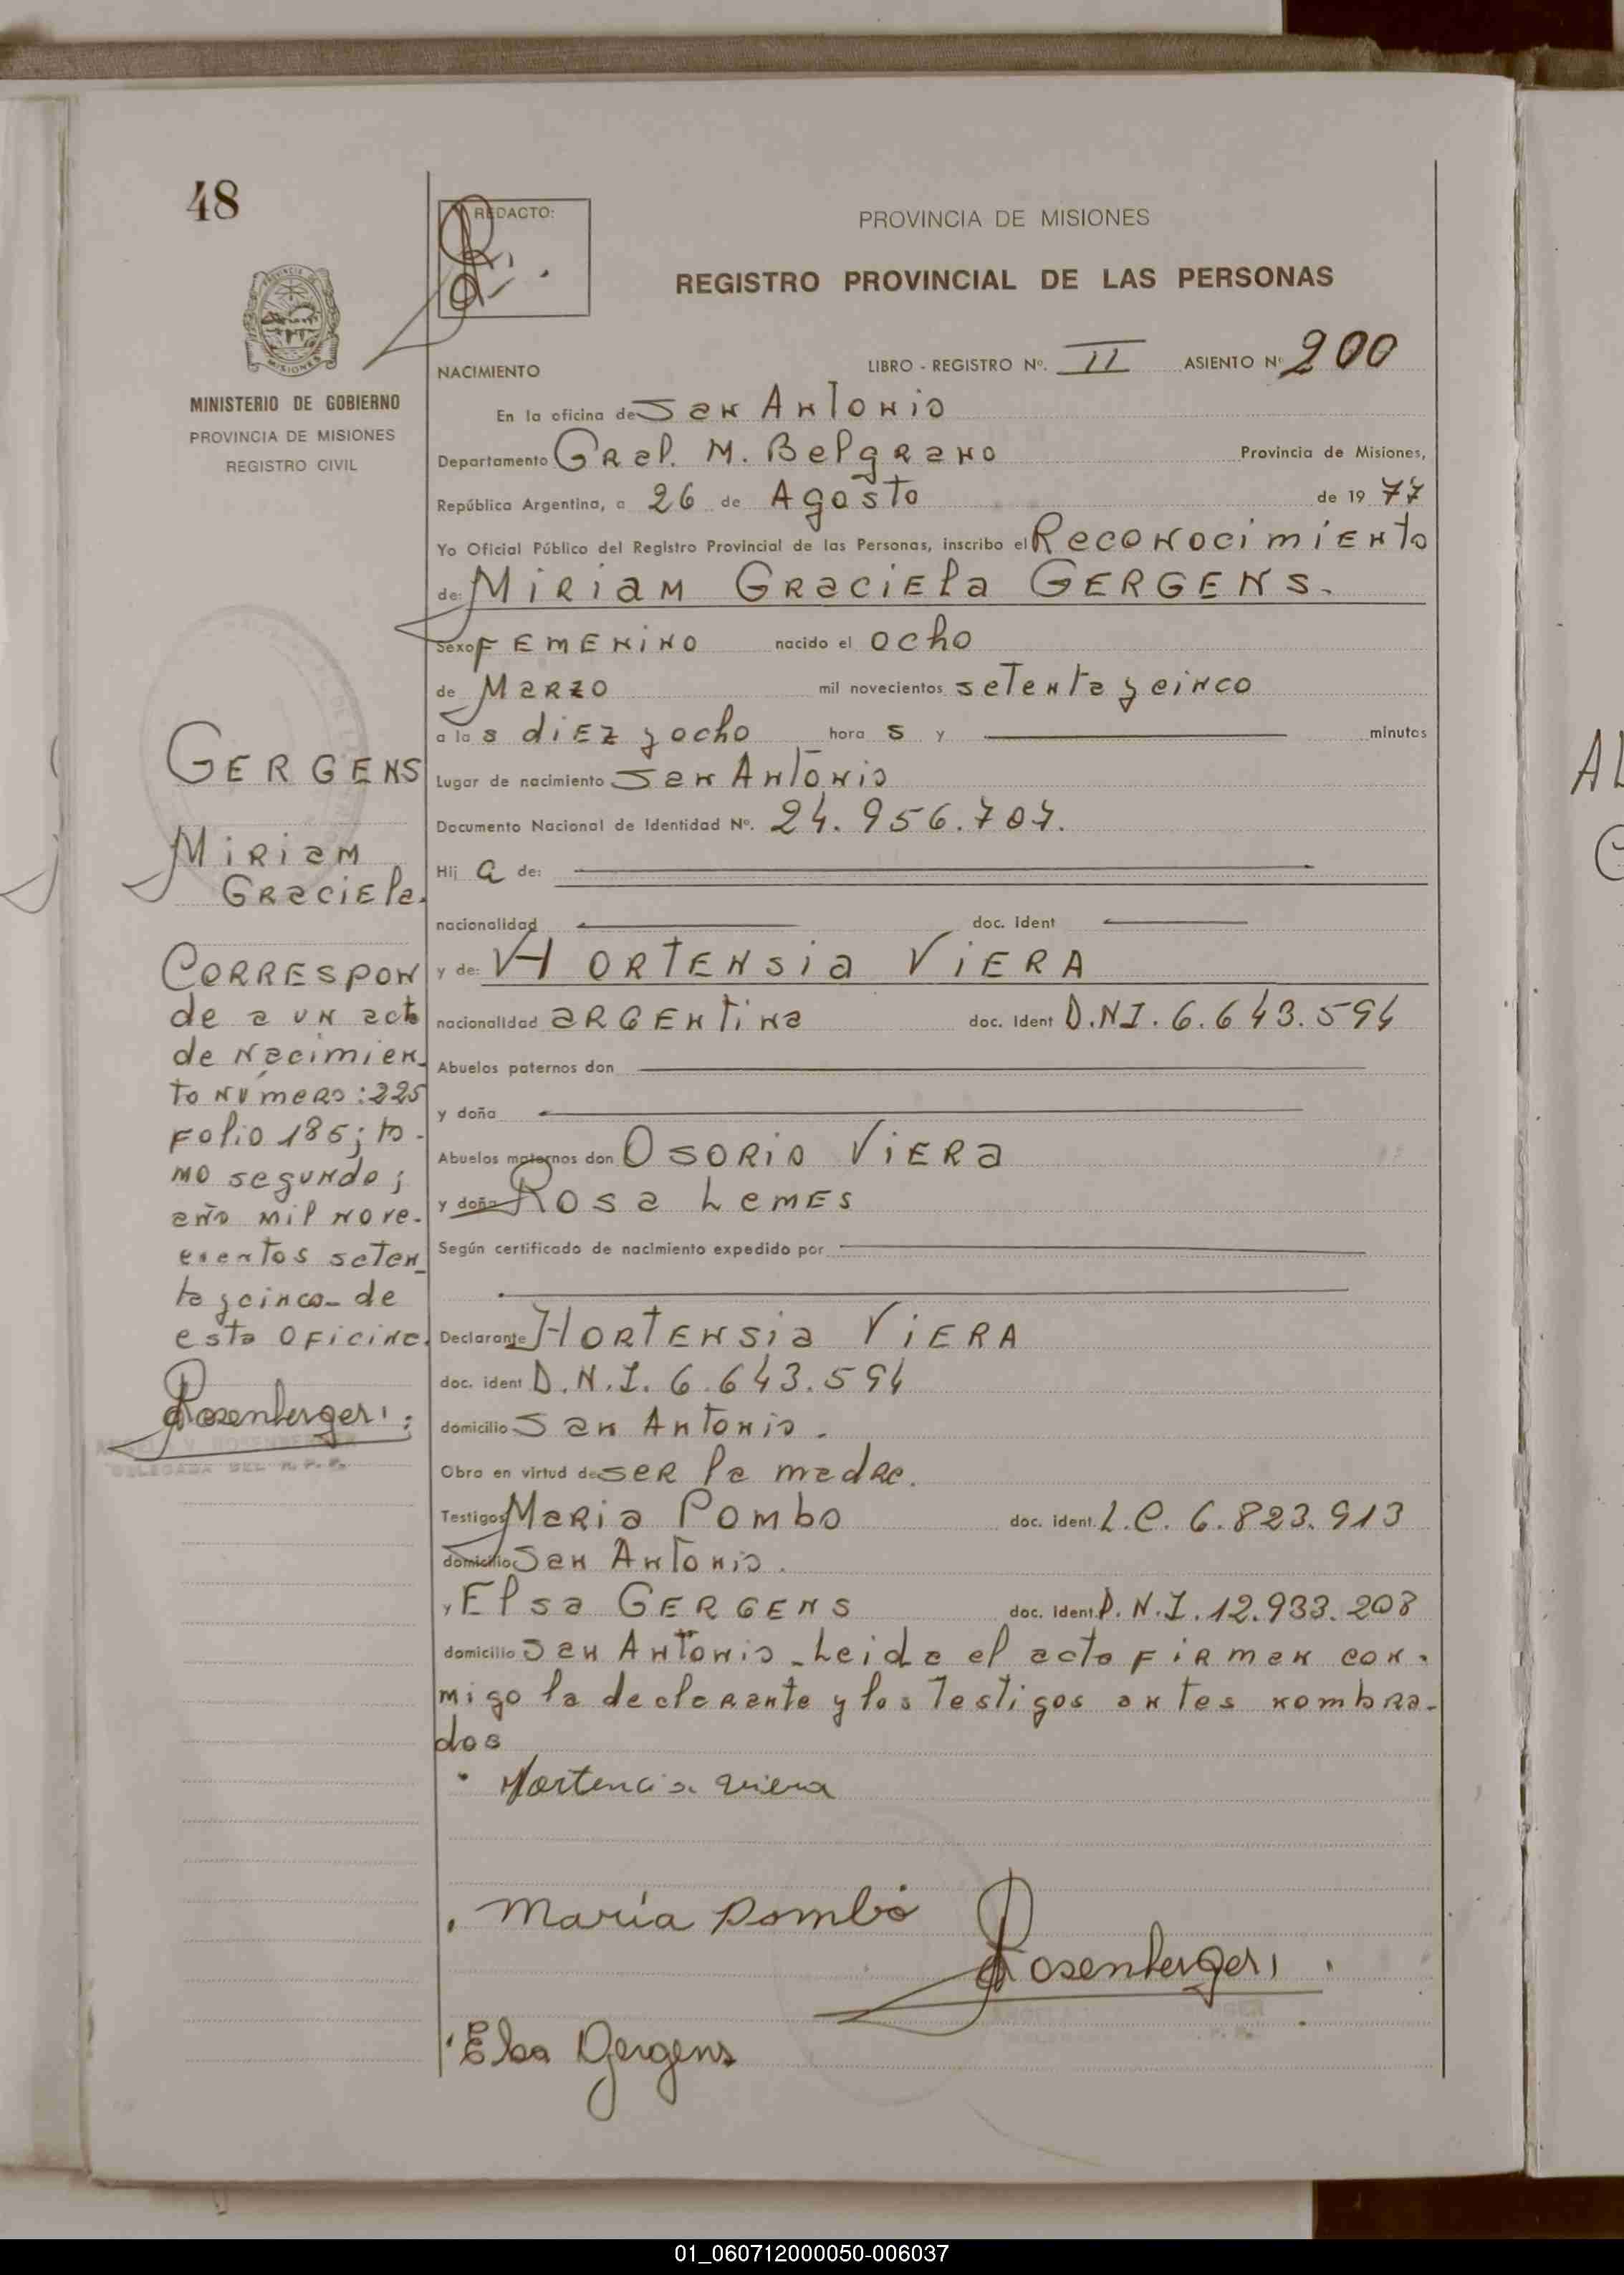 48
REDACTO:
PROVINCIA DE MISIONES
REGISTRO PROVINCIAL DE LAS PERSONAS
MINISTERIO DE GOBIERNO
PROVINCIA DE MISIONES
REGISTRO CIVIL
NACIMIENTO LIBRO - REGISTRO Nº. II ASIENTO Nº 200
En la oficina de San Antonio
Departamento Gral. M. Belgrano Provincia de Misiones,
República Argentina, a 26 de Agosto de 1977
Yo Oficial Público del Registro Provincial de las Personas, inscribo el Reconocimiento
de: Miriam Graciela GERGENS.
Sexo FEMENINO nacido el ocho
de Marzo mil novecientos setenta y cinco
a las diez y ocho horas y minutos
Lugar de nacimiento San Antonio
Documento Nacional de Identidad Nº. 24.956.707.
Hija de:
nacionalidad doc. ident
y de: HORTENSia ViERA
nacionalidad argentina doc. Ident D.N.I. 6.643.594
Abuelos paternos don
y doña
Abuelos maternos don Osorio Viera
y doña Rosa Lemes
Según certificado de nacimiento expedido por
Declarante HORTENSia ViERA
doc. ident D.N.I. 6.643.594
domicilio San Antonio.
Obra en virtud de ser la madre.
Testigos Maria Pombo doc. ident. L.C. 6.823.913
domicilio San Antonio.
y Elsa GERGENS doc. Ident. D.N.I. 12.933.208
domicilio San Antonio - Leida el acta firman con-
migo la declarante y los testigos antes nombra-
dos
Hortencia Viera
María Pombo
Rosenberger
Elsa Gergens
GERGENS
Miriam
Graciela.
CORRESPON
de a un acta
de Nacimien-
to número: 225
Folio 185; to-
mo segundo;
año mil nove-
cientos seten-
ta y cinco - de
esta Oficina.
Rosenberger
DELEGADA DEL R.P.P.
AL
01_060712000050-006037